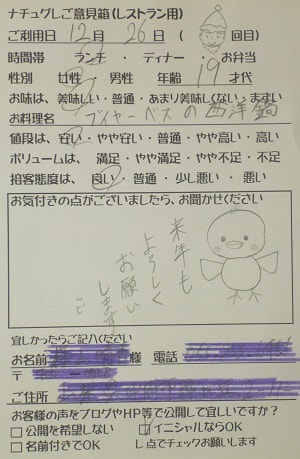 ナチュグレご意見箱(レストラン用)
ご利用日 12月 26日 ( 回目)
時間帯 ランチ ・ ディナー ・ お弁当
性別 女性 ・ 男性 年齢 19才代
お味は、美味しい・普通・あまり美味しくない・まずい
お料理名 ブイヤーベスの西洋鍋
値段は、安い・やや安い・普通・やや高い・高い
ボリュームは、満足・やや満足・やや不足・不足
接客態度は、良い・普通・少し悪い・悪い
お気付きの点がございましたら、お聞かせください
来年も
よろしく
お願い
します
宜しかったらご記入ください
お名前 様 電話
〒 ー
ご住所
お客様の声をブログやHP等で公開して宜しいですか?
□公開を希望しない □イニシャルならOK
□名前付きでOK レ点でチェックお願いします